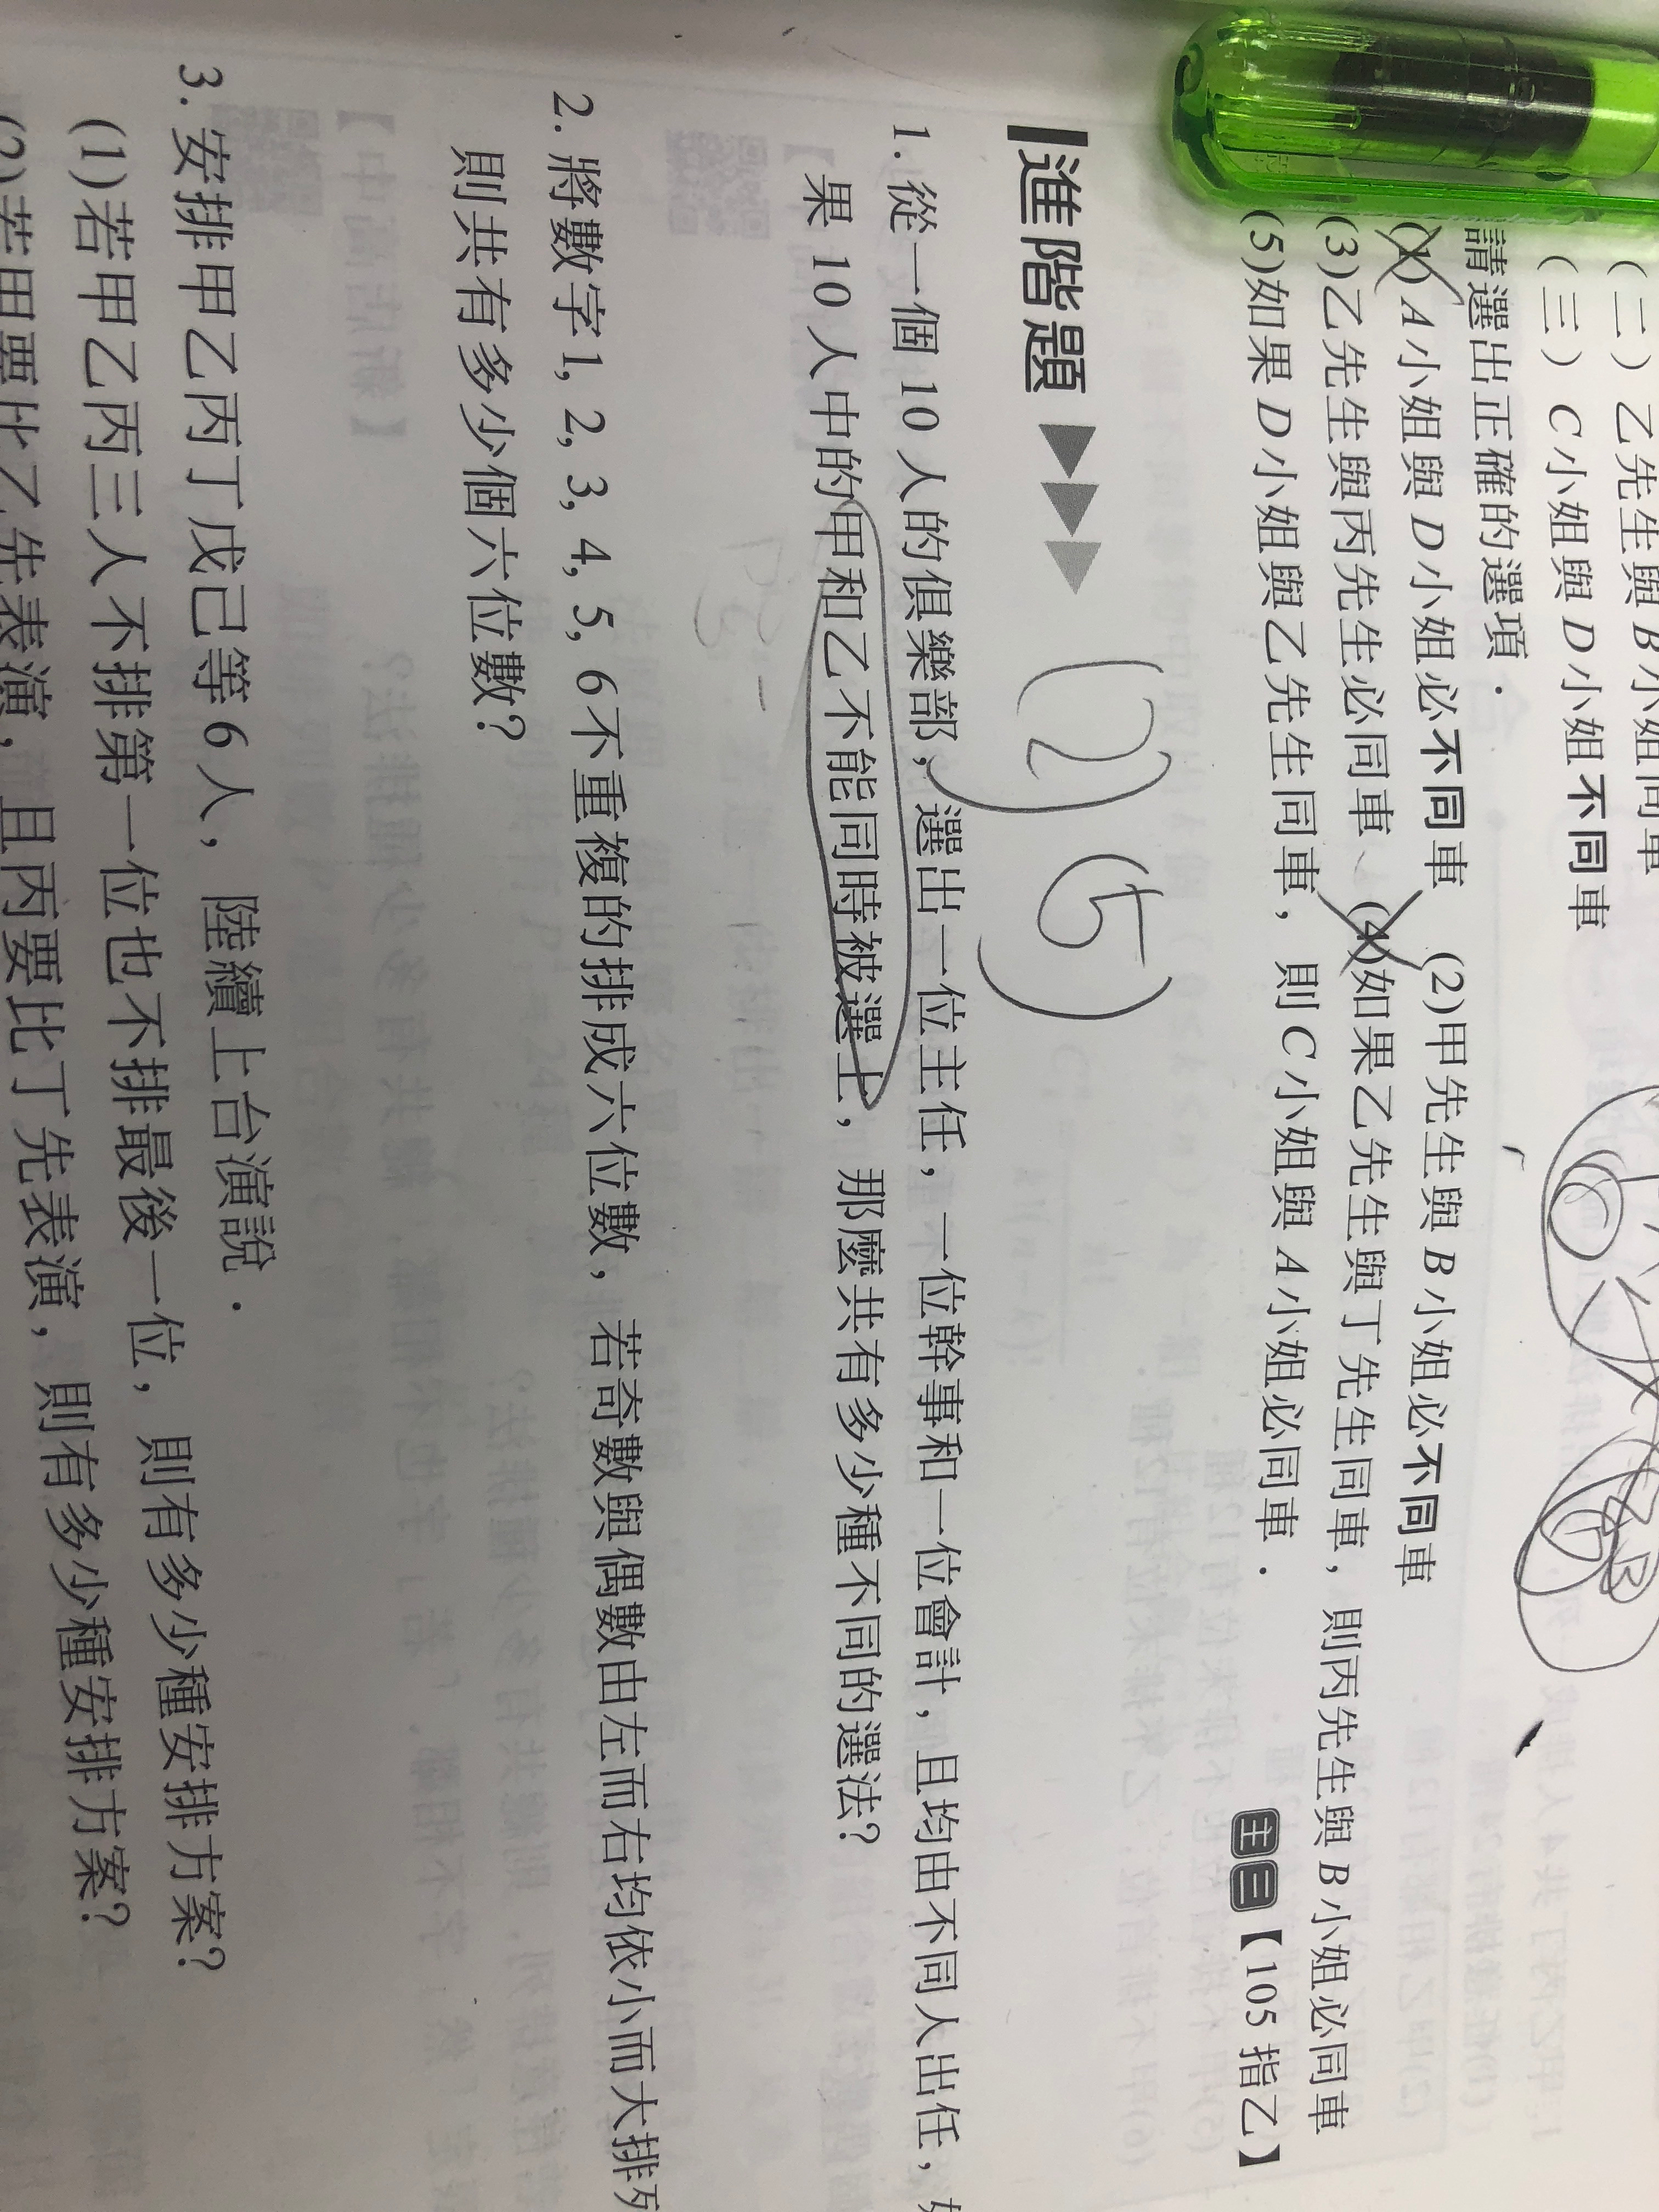 （二）乙先生與 B 小姐同車
（三）C 小姐與 D 小姐不同車
請選出正確的選項．
(1) A 小姐與 D 小姐必不同車 (2)甲先生與 B 小姐必不同車
(3)乙先生與丙先生必同車 (4)如果乙先生與丁先生同車，則丙先生與 B 小姐必同車
(5)如果 D 小姐與乙先生同車，則 C 小姐與 A 小姐必同車．
【105 指乙】
進階題
(2)(5)
1. 從一個 10 人的俱樂部，選出一位主任，一位幹事和一位會計，且均由不同人出任，如
果 10 人中的甲和乙不能同時被選上，那麼共有多少種不同的選法？
2. 將數字 1, 2, 3, 4, 5, 6 不重複的排成六位數，若奇數與偶數由左而右均依小而大排列
則共有多少個六位數？
3. 安排甲乙丙丁戊己等 6 人，陸續上台演說．
(1)若甲乙丙三人不排第一位也不排最後一位，則有多少種安排方案？
(2)若甲要比乙先表演，且丙要比丁先表演，則有多少種安排方案？